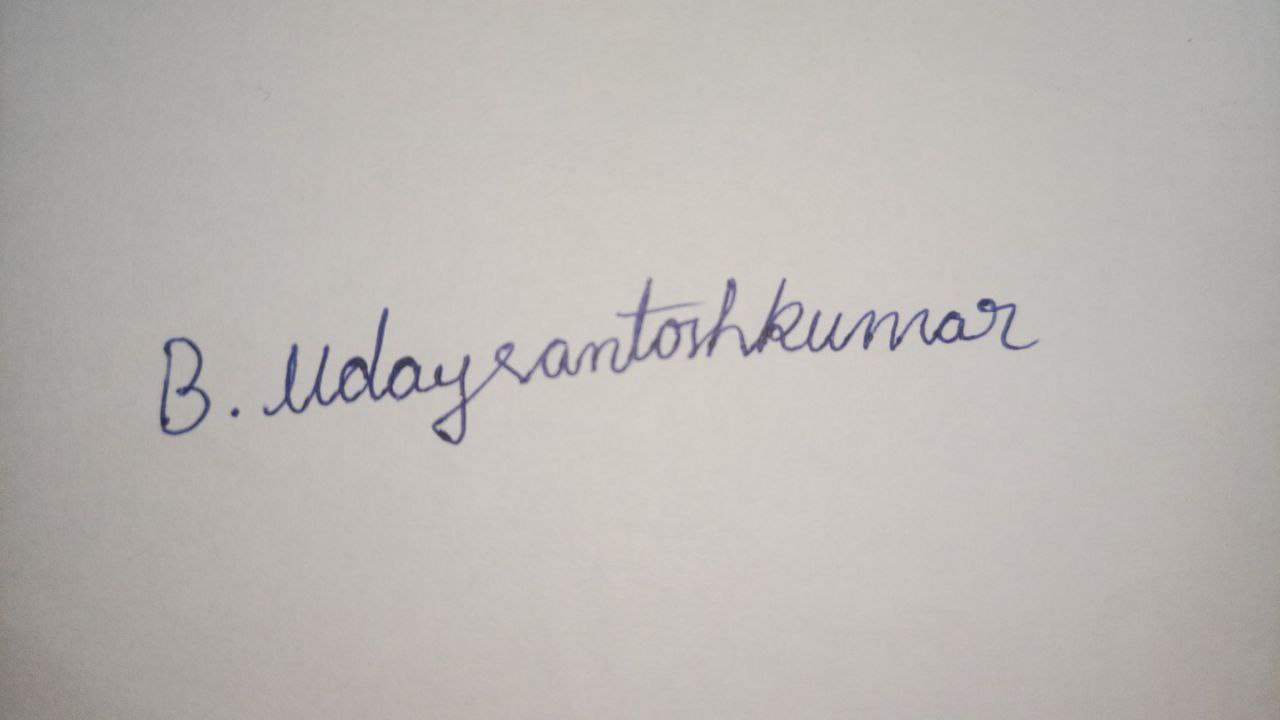 B. Udaysantoshkumar